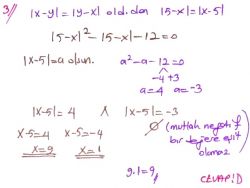 3) |x-y|=|y-x| old.dan |5-x|=|x-5|
|5-x|²-|5-x|-12=0
|x-5|=a olsun. a²-a-12=0
-4+3
a=4 a=-3
|x-5|=4 ∧ |x-5|=-3
x-5=4 x-5=-4 ∅ (mutlak negatif
bir değere eşit
olamaz)
x=9 x=1
9.1=9,
CEVAP:D